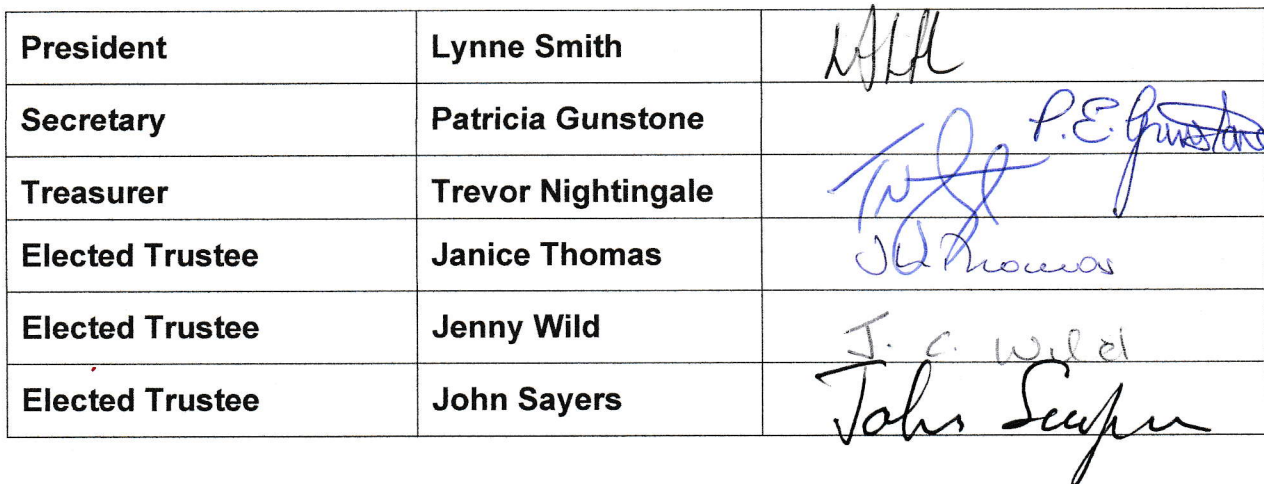 President Lynne Smith
Secretary Patricia Gunstone P.E. Gunstone
Treasurer Trevor Nightingale
Elected Trustee Janice Thomas Thomas
Elected Trustee Jenny Wild J. C. Wild
Elected Trustee John Sayers John Sayers